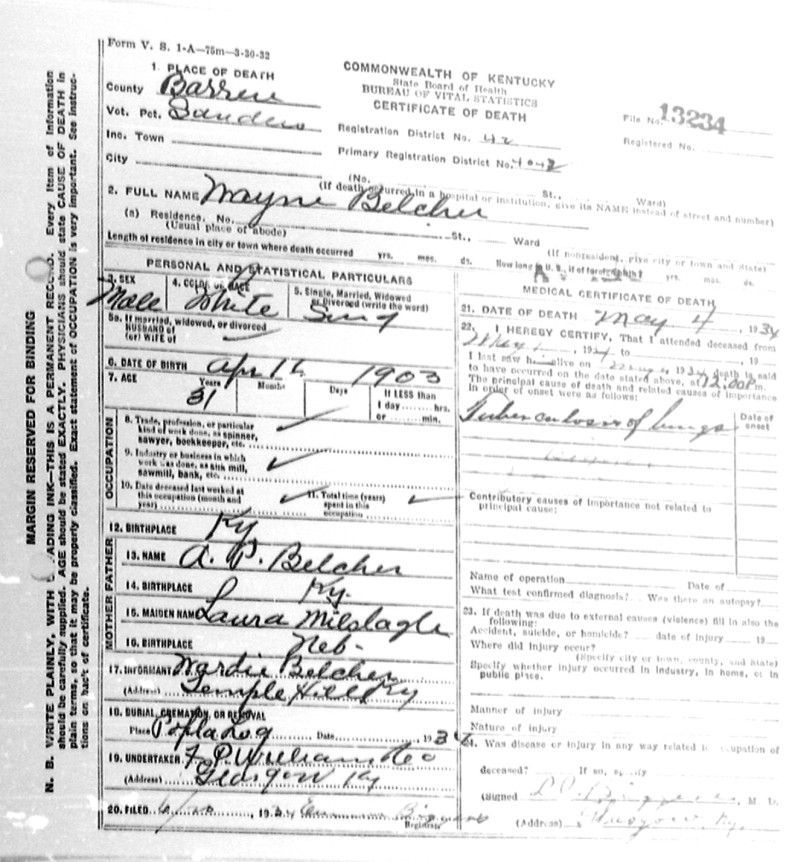 Form V. S. 1-A—75m—3-30-32
COMMONWEALTH OF KENTUCKY
State Board of Health
BUREAU OF VITAL STATISTICS
CERTIFICATE OF DEATH
File No. 13234
Registered No.
1. PLACE OF DEATH
County Barren
Vot. Pct. Sanders
Inc. Town
City
Registration District No. 42
Primary Registration District No.
(No. St., Ward)
(If death occurred in a hospital or institution, give its NAME instead of street and number)
2. FULL NAME Wayne Belcher
(a) Residence. No. St., Ward
(Usual place of abode) (If nonresident, give city or town and State)
Length of residence in city or town where death occurred yrs. mos. ds. How long in U. S., if of foreign birth? yrs. mos. ds.
PERSONAL AND STATISTICAL PARTICULARS
3. SEX 4. COLOR OR RACE 5. Single, Married, Widowed or Divorced (write the word)
Male White Sing
5a. If married, widowed, or divorced
HUSBAND of
(or) WIFE of
6. DATE OF BIRTH 1903
7. AGE Years Months Days If LESS than 1 day hrs. or min.
31
OCCUPATION
8. Trade, profession, or particular kind of work done, as spinner, sawyer, bookkeeper, etc.
9. Industry or business in which work was done, as silk mill, sawmill, bank, etc.
10. Date deceased last worked at this occupation (month and year)
11. Total time (years) spent in this occupation
12. BIRTHPLACE Ky
FATHER
13. NAME A. P. Belcher
14. BIRTHPLACE Ky.
MOTHER
15. MAIDEN NAME Laura Milslagle
16. BIRTHPLACE Neb.
17. INFORMANT Wardie Belcher
(Address) Temple Hill Ky
18. BURIAL, CREMATION, OR REMOVAL
Place Popla Log Date 1934
19. UNDERTAKER
(Address) Glasgow Ky
20. FILED , 19
Registrar
MEDICAL CERTIFICATE OF DEATH
21. DATE OF DEATH May 4, 1934
22. I HEREBY CERTIFY, That I attended deceased from
May , 19 to , 19
I last saw h alive on , 19 death is said
to have occurred on the date stated above, at 12.00 P m.
The principal cause of death and related causes of importance
in order of onset were as follows:
Date of onset
Tuberculosis of lungs
Contributory causes of importance not related to
principal cause:
Name of operation Date of
What test confirmed diagnosis? Was there an autopsy?
23. If death was due to external causes (violence) fill in also the
following:
Accident, suicide, or homicide? date of injury 19
Where did injury occur?
(Specify city or town, county, and State)
Specify whether injury occurred in industry, in home, or in
public place.
Manner of injury
Nature of injury
24. Was disease or injury in any way related to occupation of
deceased? If so, specify
(Signed , M. D.
(Address) Glasgow, Ky.
MARGIN RESERVED FOR BINDING
N. B. WRITE PLAINLY, WITH UNFADING INK—THIS IS A PERMANENT RECORD. Every item of information
should be carefully supplied. AGE should be stated EXACTLY. PHYSICIANS should state CAUSE OF DEATH in
plain terms, so that it may be properly classified. Exact statement of OCCUPATION is very important. See instruc-
tions on back of certificate.